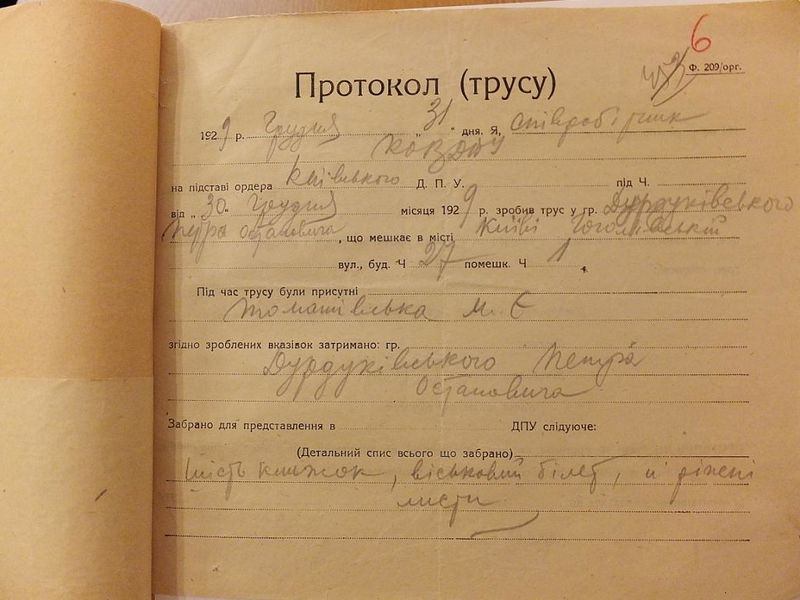 6
Ф. 209/орг.
Протокол (трусу)
1929 р. Грудня „31" дня. Я, співробітник
на підставі ордера Київського Д. П. У. під Ч.
від „30" Грудня місяця 1929 р. зробив трус у гр. Дурдуківського
Петра Остаповича, що мешкає в місті Київі Гоголівській
вул., буд. Ч 27 помешк. Ч 1
Під час трусу були присутні
Томашівська М. Є
згідно зроблених вказівок затримано: гр.
Дурдуківського Петра
Остаповича
Забрано для представлення в ДПУ слідуюче:
(Детальний спис всього що забрано)
Шість книжок, військовий білет, и ріжні
листи